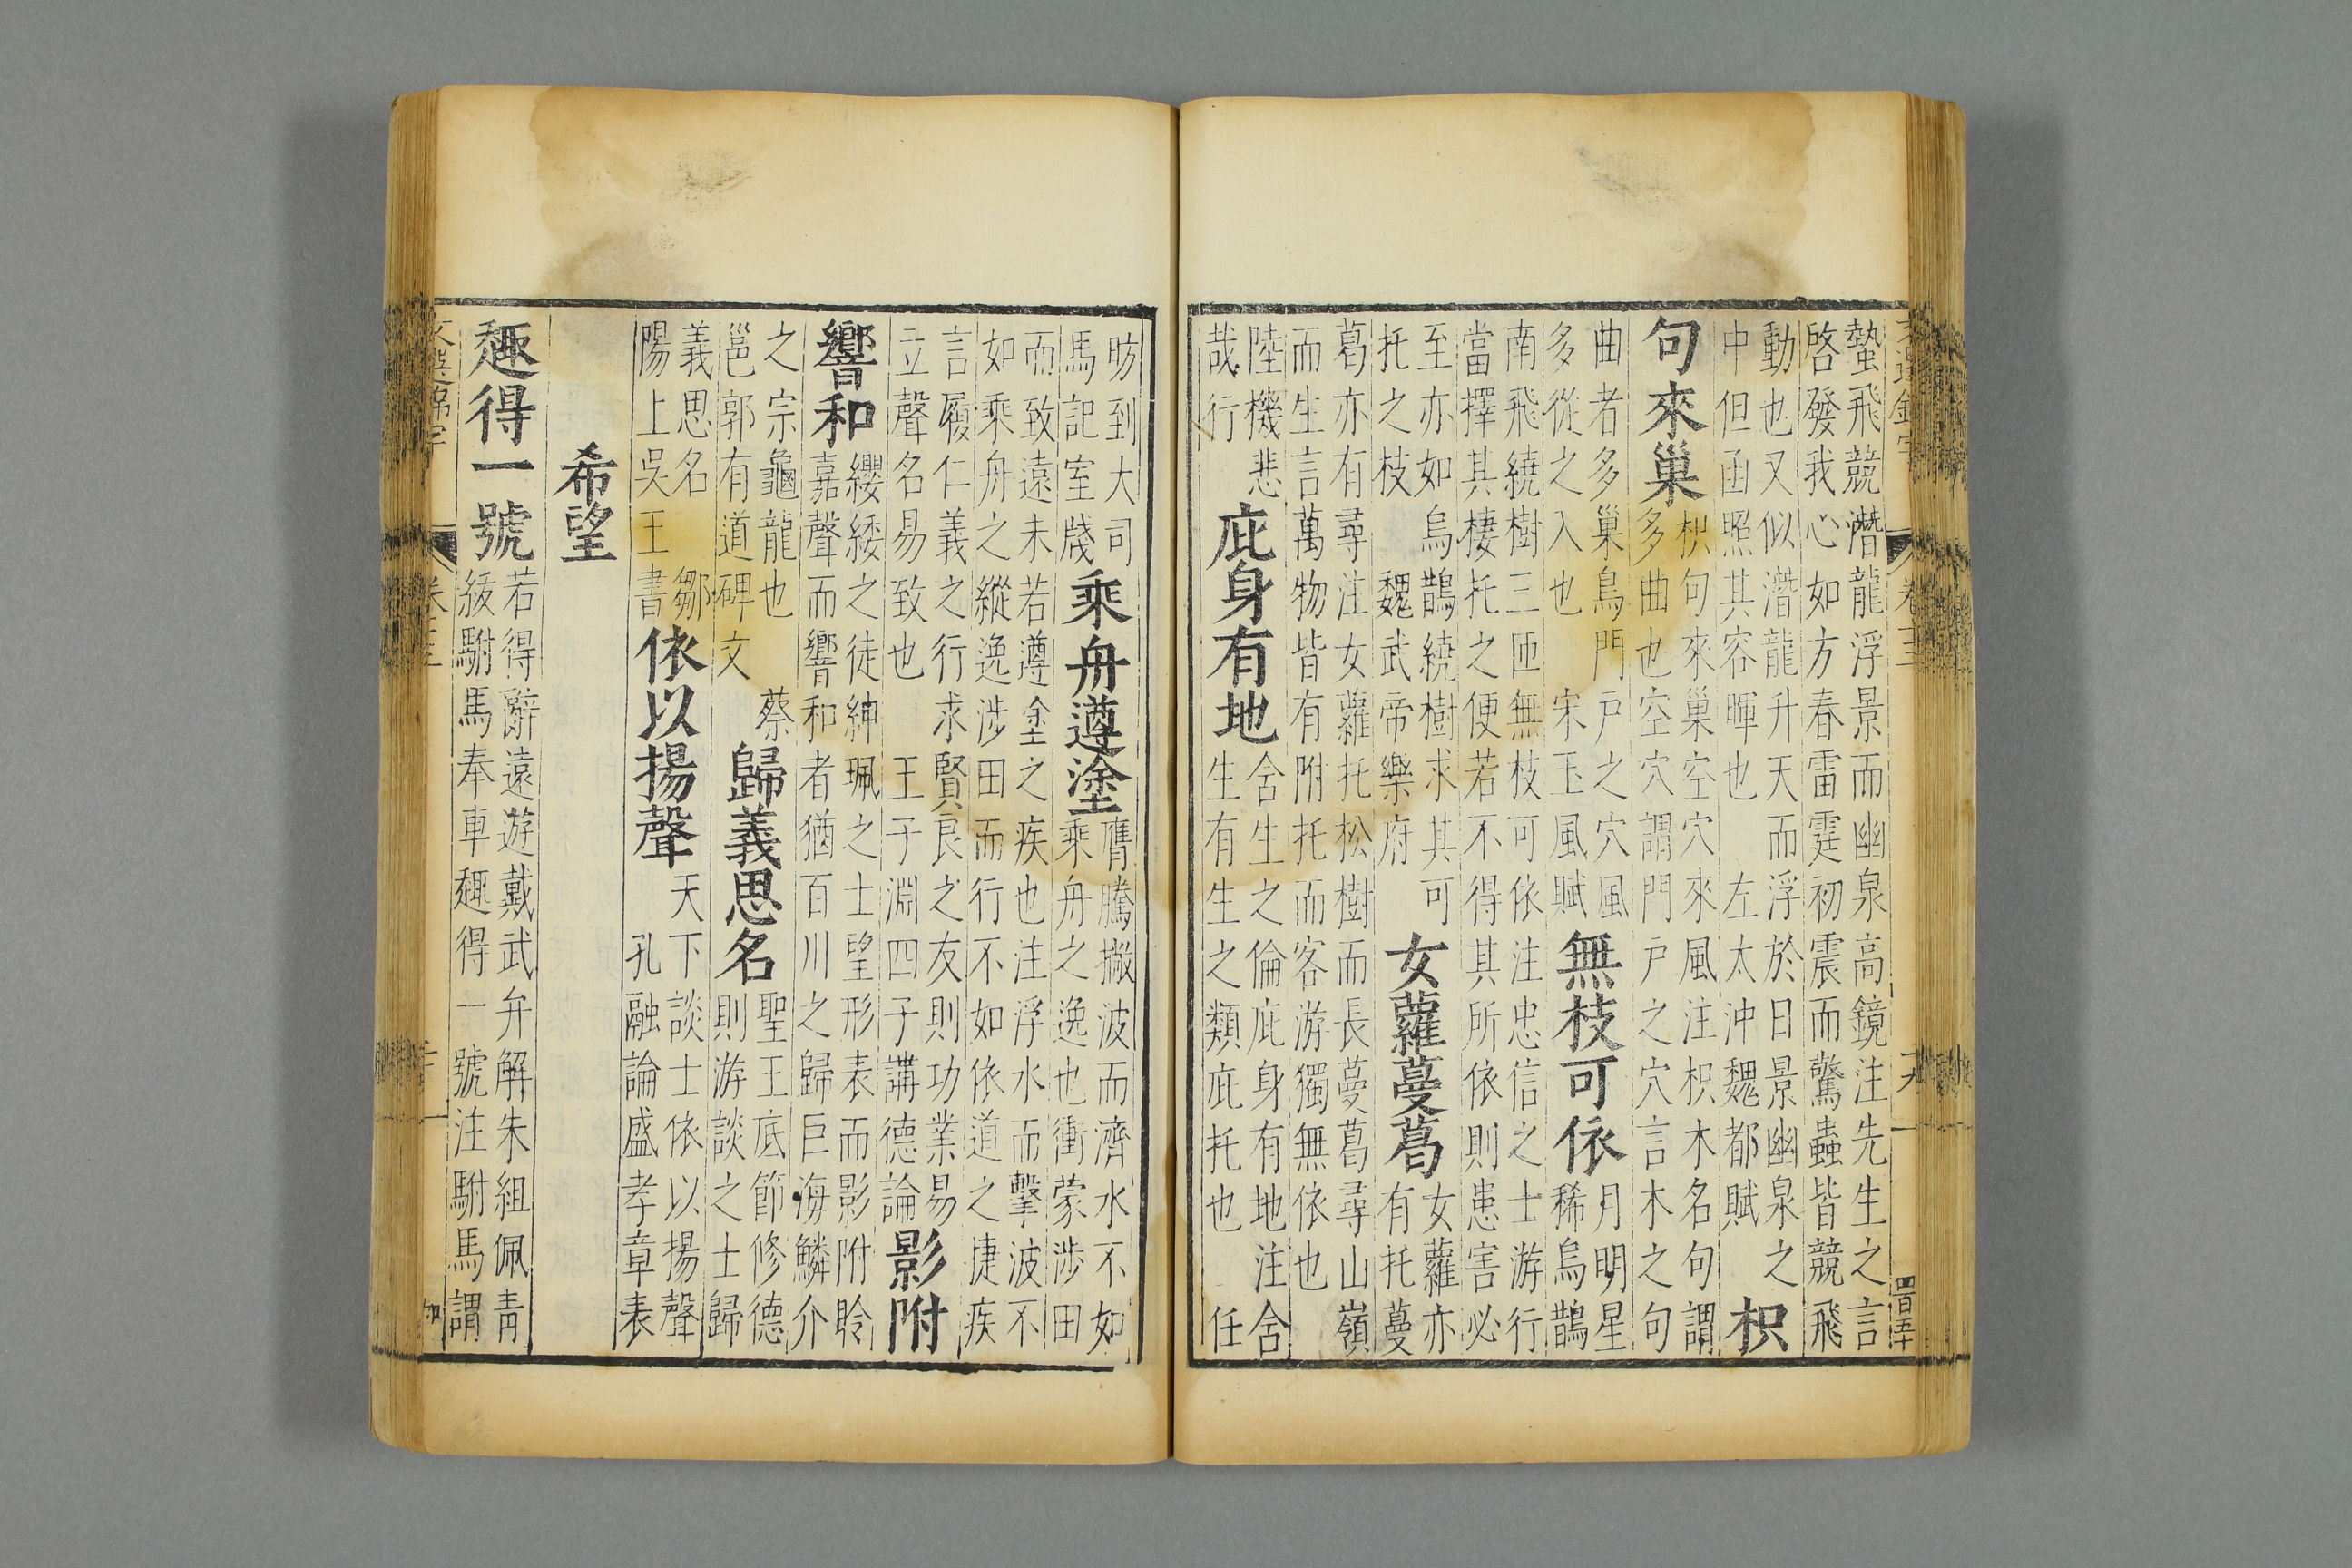 文選錦字 卷三 十九 四百五十
蟄飛競潛龍浮景而幽泉高鏡注先生之言
啓發我心如方春雷霆初震而驚蟲皆競飛
動也又似潛龍升天而浮於日景幽泉之
中但函照其容暉也 左太沖魏都賦
枳
句來巢
枳句來巢空穴來風注枳木名句謂
多曲也空穴謂門戶之穴言木之句
曲者多巢鳥門戶之穴風
多從之入也 宋玉風賦
無枝可依
月明星
稀烏鵲
南飛繞樹三匝無枝可依注忠信之士游行
當擇其棲托之便若不得其所依則患害必
至亦如烏鵲繞樹求其可
托之枝 魏武帝樂府
女蘿蔓葛
女蘿亦
有托蔓
葛亦有尋注女蘿托松樹而長蔓葛尋山嶺
而生言萬物皆有附托而客游獨無依也
陸機悲
哉行
庇身有地
舍生之倫庇身有地注舍
生有生之類庇托也 任
昉到大司
馬記室牋
乘舟遵塗
膺騰撇波而濟水不如
乘舟之逸也衝蒙涉田
而致遠未若遵塗之疾也注浮水而擊波不
如乘舟之縱逸涉田而行不如依道之捷疾
言履仁義之行求賢良之友則功業易
立聲名易致也 王子淵四子講德論
影附
響和
纓緌之徒紳珮之士望形表而影附聆
嘉聲而響和者猶百川之歸巨海鱗介
之宗龜龍也 蔡
邕郭有道碑文
歸義思名
聖王底節修德
則游談之士歸
義思名 鄒
陽上吳王書
依以揚聲
天下談士依以揚聲
孔融論盛孝章表
希望
趣得一號
若得辭遠遊戴武弁解朱組佩青
紱駙馬奉車趣得一號注駙馬謂
文選錦字 卷三